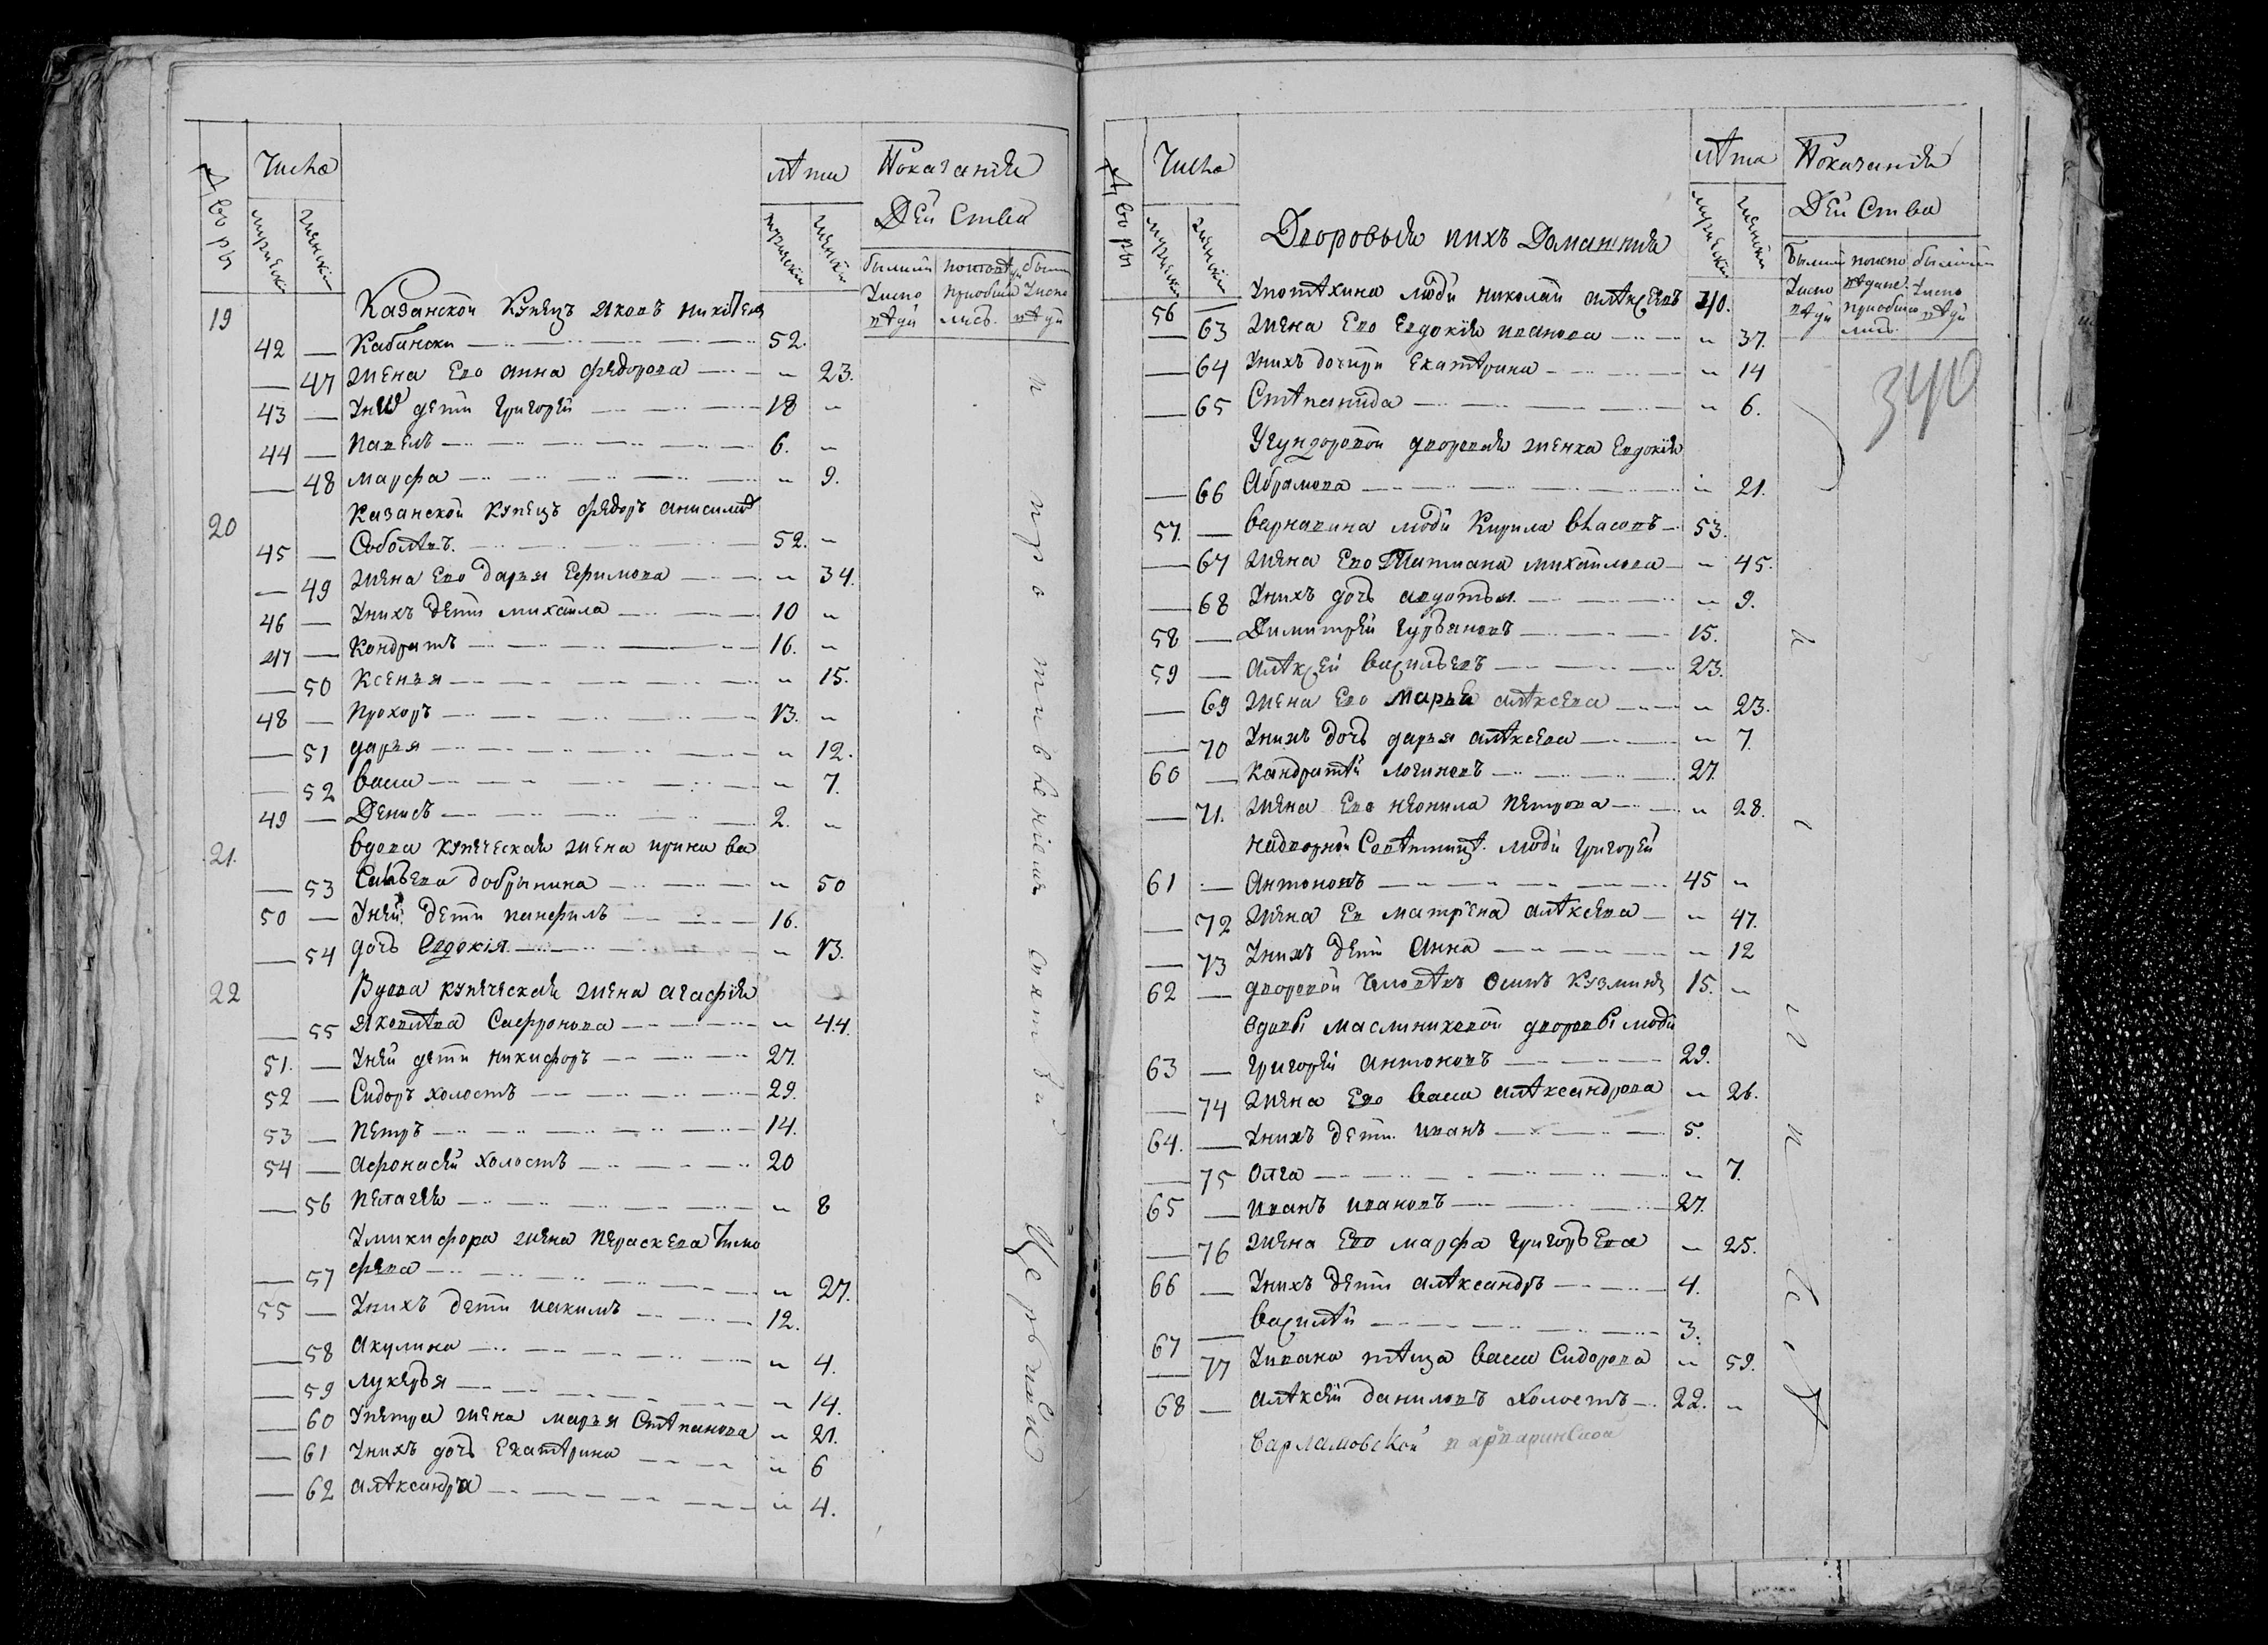 Дворы
Числа
мужеска
женски
Лѣта
мужески
женски
Показаніи
Дѣйства
бывшии
Число
потомъ
приобщи
лись
19 Казанской Купецъ Яковъ Никитевъ
42 — Кабински 52.
— 47 жена Ево Анна Федорова „ 23.
43 — Уних дети Григорей 18 „
44 — Павелъ 6. „
— 48 Марфа „ 9.
20 Казанской Купецъ Федоръ Анисимовъ
45 — Соболевъ 52. „
— 49 жена Ево Дарья Ефимова „ 34.
46 — Унихъ дети Михаила 10 „
47 — Кондратъ 16. „
— 50 Ксенья „ 15.
48 — Прохоръ 13. „
— 51 Дарья „ 12.
— 52 Васса „ 7.
49 — Денисъ 2. „
21. Вдова купеческая жена Ирина Ва
— 53 сильева Добрынина „ 50
50 — Уней дети Панфилъ 16.
— 54 дочь Евдокія „ 13.
22 Вдова купеческая жена Агафия
— 55 Яковлева Сафронова „ 44.
51. — Уней дети Никифоръ 27.
52 — Сидоръ холостъ 29.
53 — Петръ 14.
54 — Афонасей холостъ 20
— 56 Пелагея „ 8
Уникифора жена Пераскева Тимо
— 57 фева „ 27.
55 — Унихъ дети Иакимъ 12.
— 58 Акулина „ 4.
— 59 Лукерья „ 14.
— 60 Упетра жена Марья Стѣпанова „ 21.
— 61 Унихъ дочь Екатѣрина „ 6
— 62 Алѣксандра „ 4.
Дворы
Числа
мужеска
женски
Дворовыя ихъ Домашния
Лѣта
мужески
женски
Показания
Дѣйства
340
56 — Употѣхина люди Николай Алѣксѣевъ 40.
— 63 жена Ево Евдокия Иванова „ 37.
— 64 Унихъ дочери Екатѣрина „ 14
— 65 Стѣпанида „ 6.
дворовая женка Евдокия
— 66 Абрамова „ 21.
57. — Варнавина люди Кирила Власовъ 53.
— 67 жена Ево Татиана Михаилова „ 45.
— 68 Унихъ дочь Авдотья „ 9.
58 — Димитрей Гурьяновъ 15.
59 — Алѣксей Васильевъ 23.
— 69 жена Ево Марья Алѣксева „ 23.
— 70 Унихъ дочь Дарья Алѣксева „ 7.
60 — Кандратѣй Логиновъ 27.
— 71. жена Ево Неонила Петрова „ 28.
Надворной Совѣтницы люди Григорей
61 — Антоновъ 45 „
— 72 жена Ев Матрена Алѣксева „ 47.
— 73 Унихъ дети Анна „ 12
62 — дворовой Человѣкъ Осипъ Кузминъ 15. „
вдовы Маслениковой дворовы люди
63 — Григорей Антоновъ 29.
— 74 жена Ево Васса Алѣксандрова „ 26.
64. — Унихъ дети Иванъ 5.
— 75 Олга „ 7.
65 — Иванъ Ивановъ 27.
— 76 жена Ево Марфа Григорьева „ 25.
66 — Унихъ дети Алѣксандръ 4.
67 — Василѣй 3.
— 77 Уивана тѣща Васса Сидорова „ 59.
68 — Алѣксей Даниловъ холостъ 22. „
Варламовской